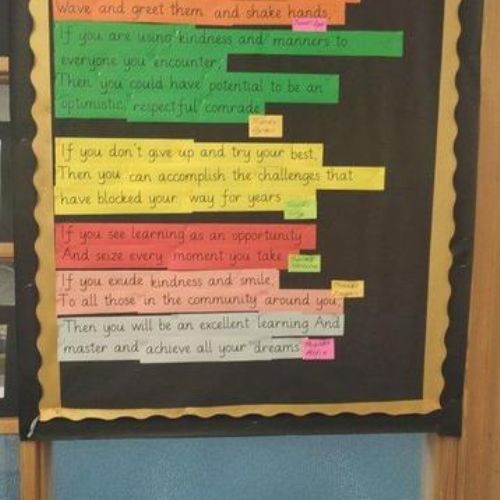 wave and greet them and shake hands,
If you are using kindness and manners to
everyone you encounter,
Then you could have potential to be an
optimistic, respectful comrade
If you don't give up and try your best,
Then you can accomplish the challenges that
have blocked your way for years
If you see learning as an opportunity
And seize every moment you take
If you exude kindness and smile,
To all those in the community around you,
Then you will be an excellent learning And
master and achieve all your dreams